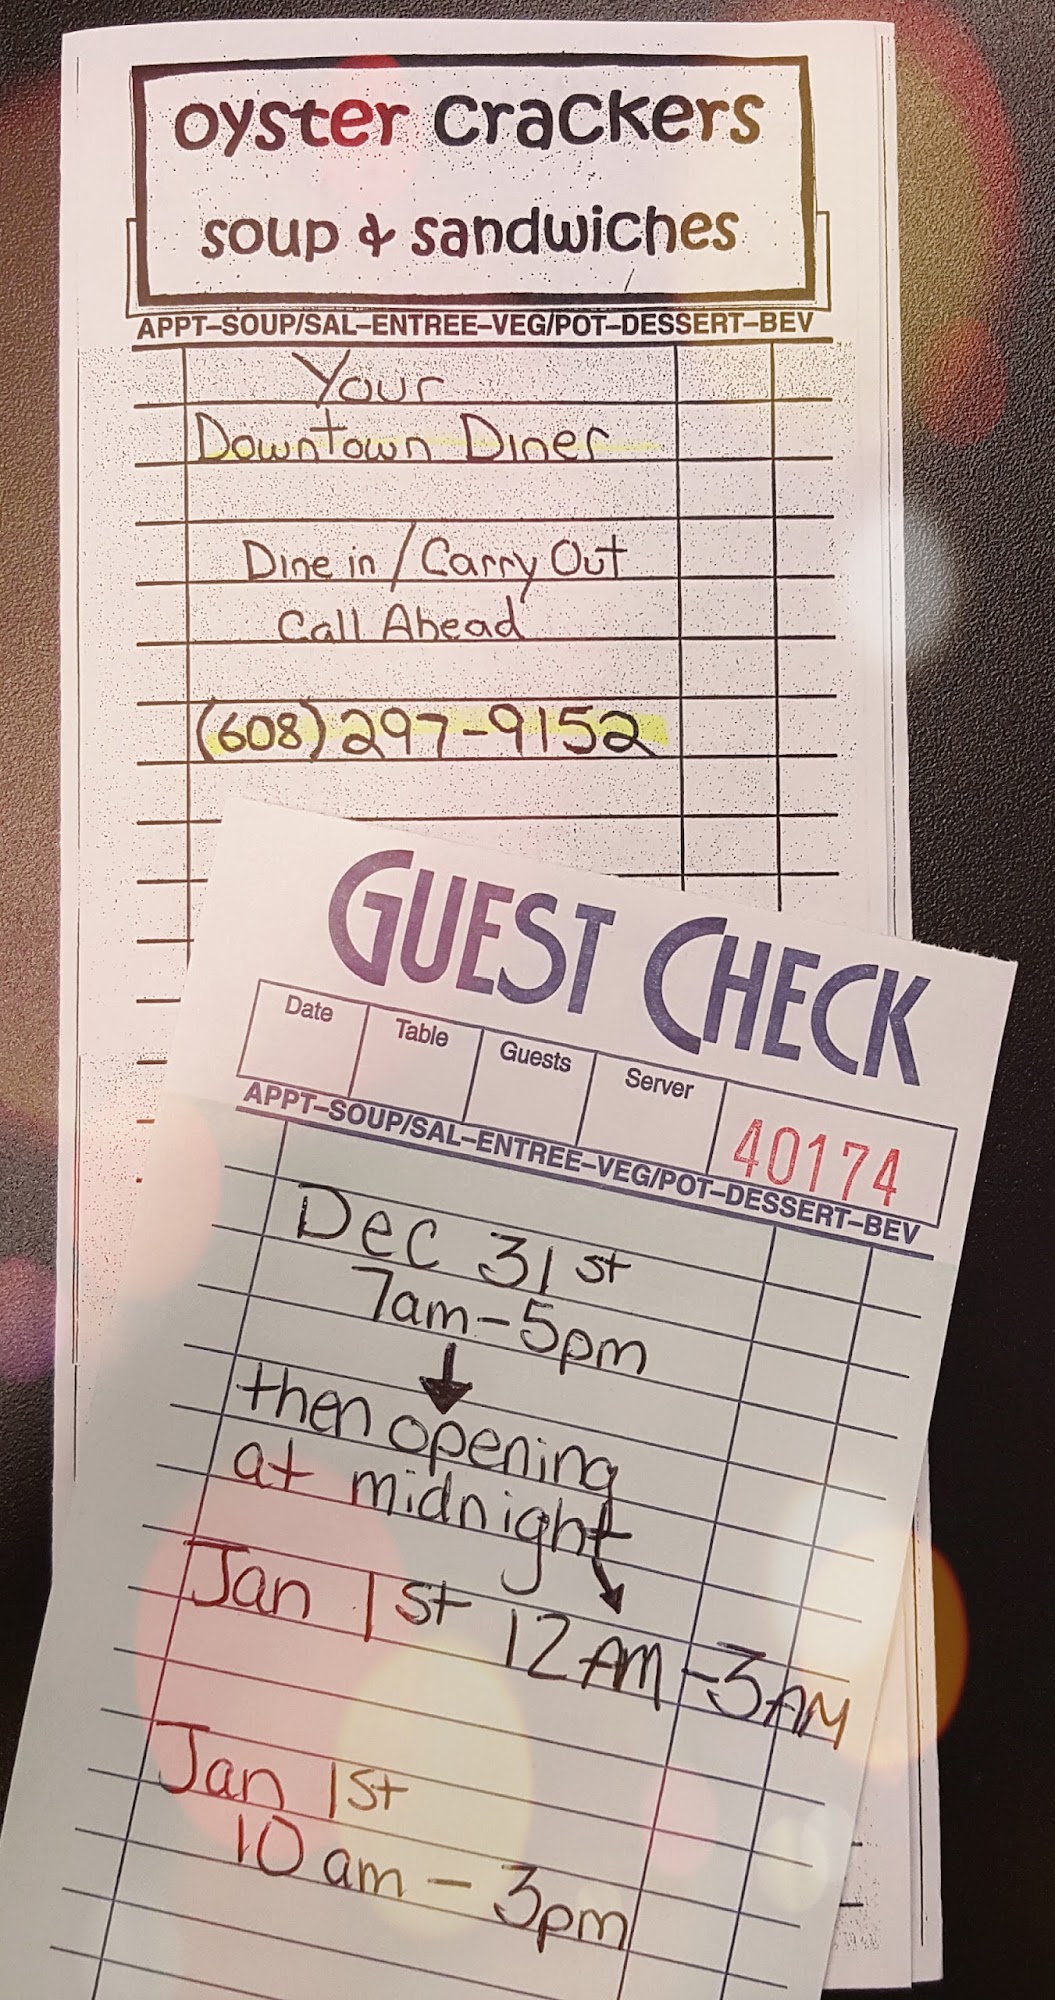 oyster crackers
soup & sandwiches
APPT–SOUP/SAL–ENTREE–VEG/POT–DESSERT–BEV
Your
Downtown Diner
Dine in / Carry Out
Call Ahead
(608) 297-9152
GUEST CHECK
Date Table Guests Server
40174
APPT–SOUP/SAL–ENTREE–VEG/POT–DESSERT–BEV
Dec 31st
7am-5pm
then opening
at midnight
Jan 1st 12AM-3AM
Jan 1st
10am - 3pm